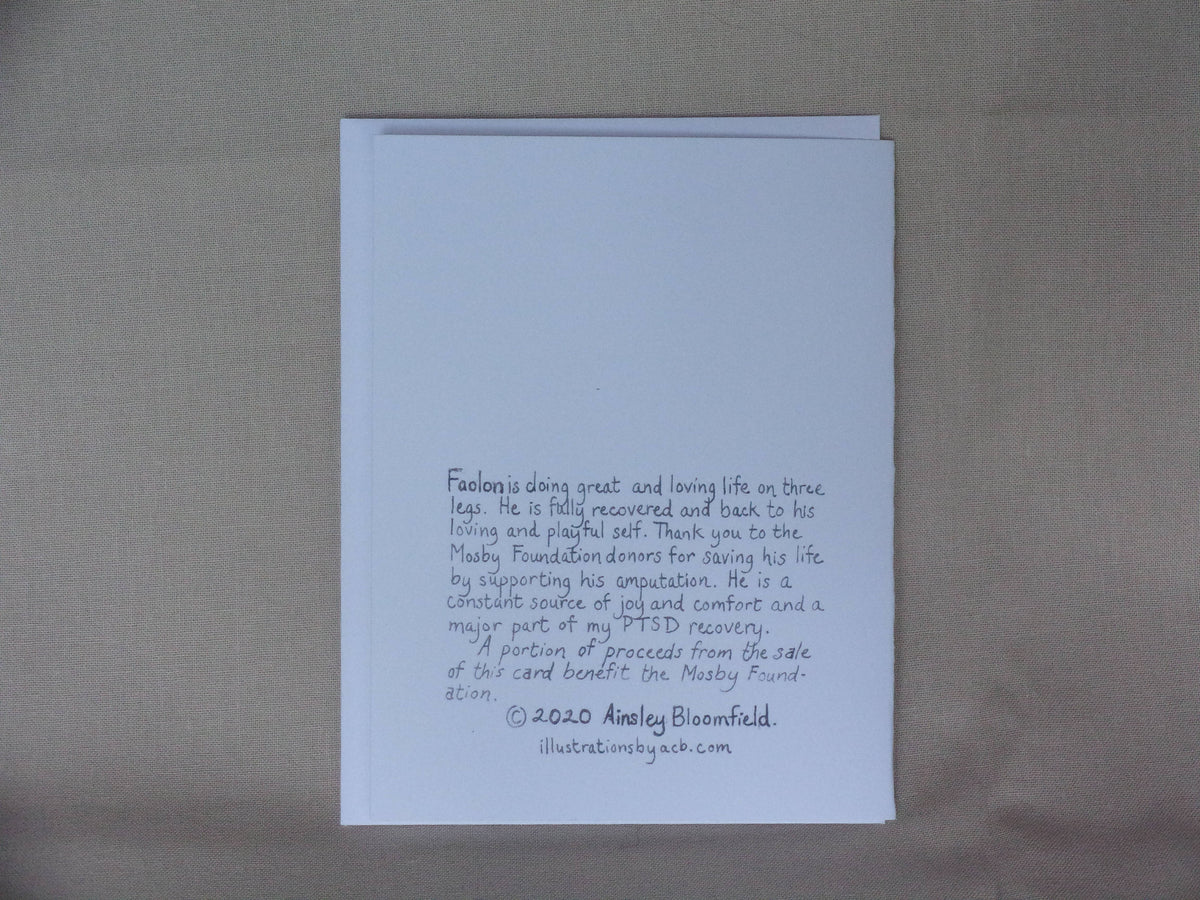 Faolon is doing great and loving life on three
legs. He is fully recovered and back to his
loving and playful self. Thank you to the
Mosby Foundation donors for saving his life
by supporting his amputation. He is a
constant source of joy and comfort and a
major part of my PTSD recovery.
A portion of proceeds from the sale
of this card benefit the Mosby Found-
ation.
© 2020 Ainsley Bloomfield.
illustrationsbyacb.com